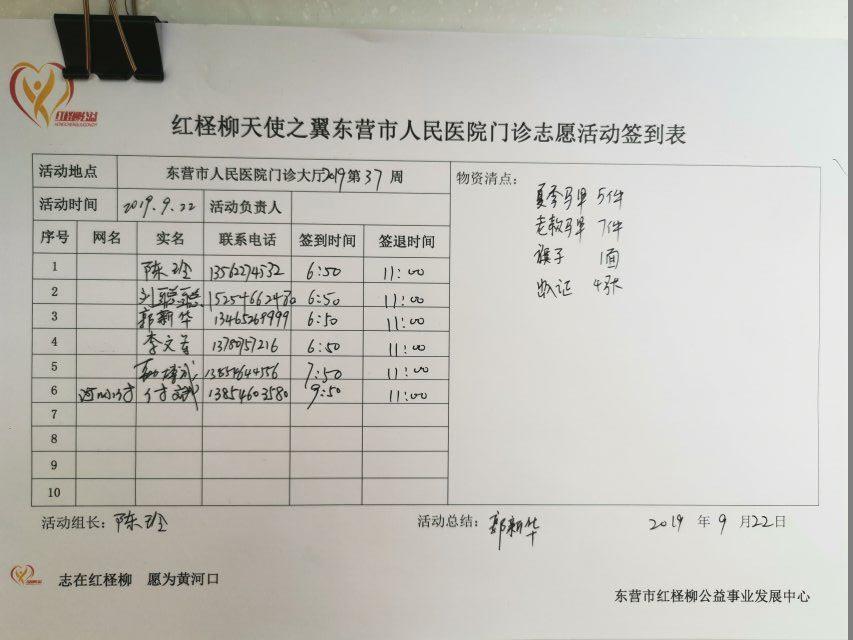 红柽柳公益
HONGCHENGLIUGONGYI
红柽柳天使之翼东营市人民医院门诊志愿活动签到表
活动地点 东营市人民医院门诊大厅2019第37周
活动时间 2019.9.22 活动负责人
序号 网名 实名 联系电话 签到时间 签退时间
1 陈玲 13562274532 6:50 11:00
2 刘 15254662480 6:50 11:00
3 郭新华 13465269999 6:50 11:00
4 李文 13780757216 6:50 11:00
5 13854644556 7:50 11:00
6 付斌 13854603580 9:50 11:00
7
8
9
10
物资清点:
夏季马甲 5件
老款马甲 7件
旗子 1面
证 4张
活动组长: 陈玲 活动总结: 郭新华 2019 年 9 月 22 日
志在红柽柳 愿为黄河口
东营市红柽柳公益事业发展中心